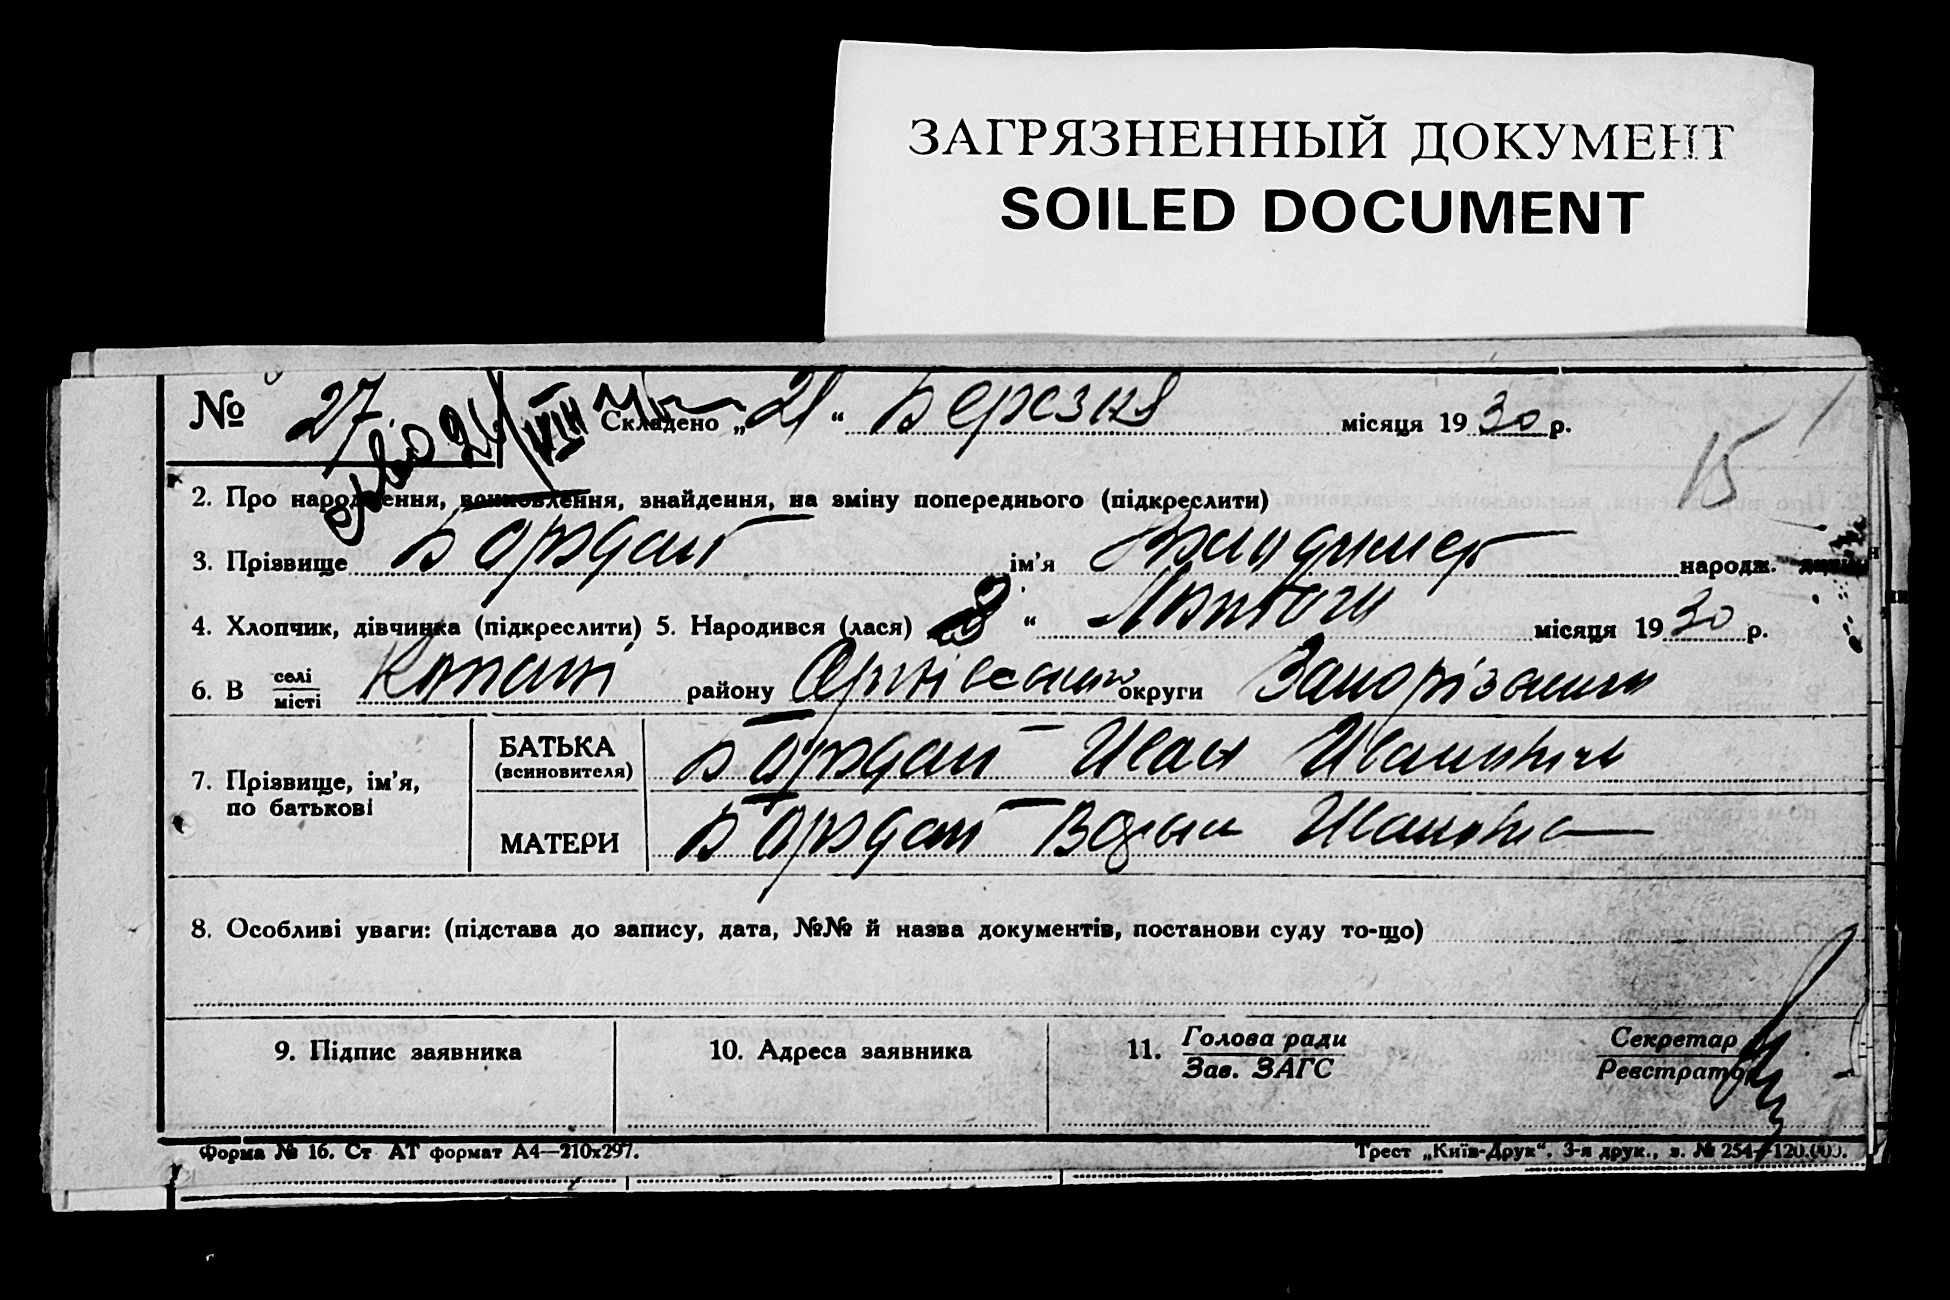 ЗАГРЯЗНЕННЫЙ ДОКУМЕНТ
SOILED DOCUMENT
№ 27 Складено „21“ Березня місяця 1930 р.
15
2. Про народження, усиновлення, знайдення, на зміну попереднього (підкреслити)
3. Прізвище ім'я Владимер народж.
4. Хлопчик, дівчинка (підкреслити) 5. Народився (лася) 8 “ Лютого місяця 1930 р.
6. В селі місті Копані району Оріхівський округи Запорізький
7. Прізвище, ім'я, по батькові
БАТЬКА (всиновителя) Иван Иванович
МАТЕРИ Ивановна
8. Особливі уваги: (підстава до запису, дата, №№ й назва документів, постанови суду то-що)
9. Підпис заявника 10. Адреса заявника 11. Голова ради Зав. ЗАГС Секретар Реєстратор
Форма № 16. Ст АТ формат А4—210х297. Трест „Київ-Друк“. 3-я друк., з. № 254—120.000.